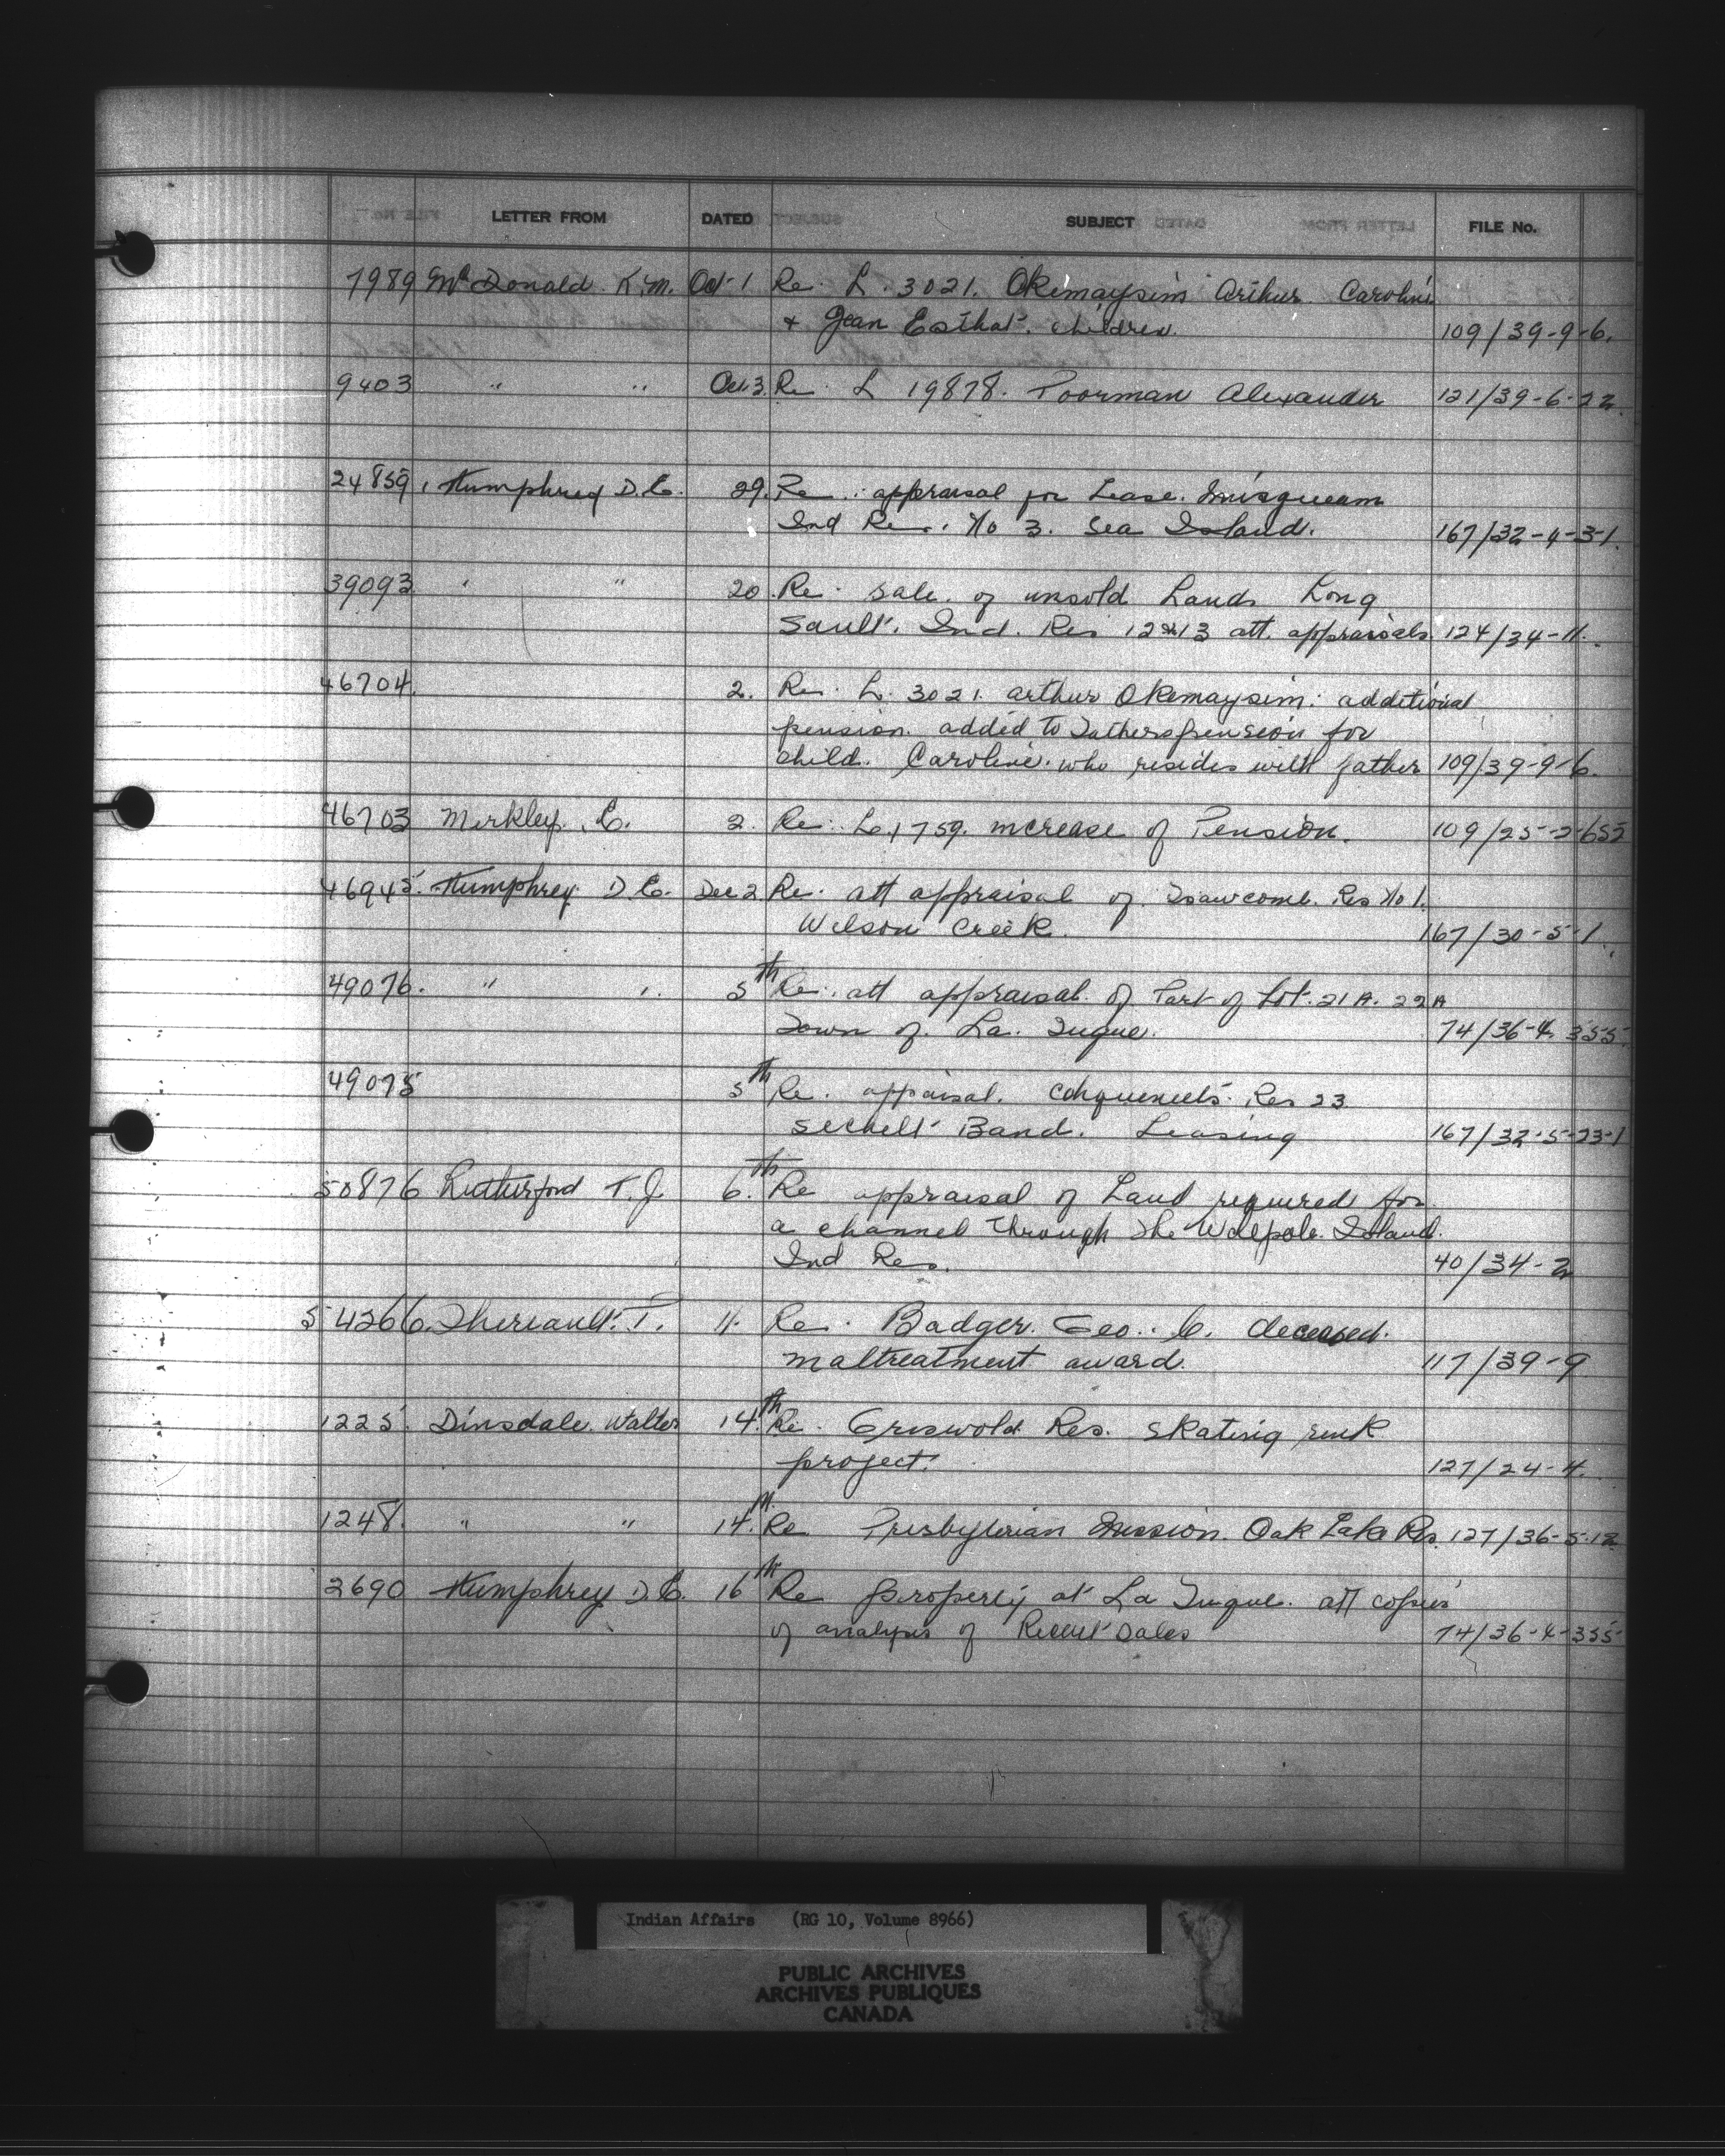 LETTER FROM DATED SUBJECT FILE No.
7989 McDonald K.M. Oct 1 Re. L. 3021. Okemaysim Arthur. Caroline
& Jean Esthat. children. 109/39-9-6.
9403 " " Oct. 3. Re L 19878. Poorman Alexander 121/39-6-22.
24859. Humphrey D.C. 29. Re. appraisal for Lease. Musqueam
Ind Res. No 3. Sea Island. 167/32-4-3-1.
39093 " " 20. Re. Sale of unsold Lands Long
Sault. Ind. Res 12 & 13 att. appraisals. 124/34-11.
46704. 2. Re. L. 3021. Arthur Okemaysim. additional
pension. added to Fathers pension for
child. Caroline. who resides with father 109/39-9-6.
46703 Merkley. C. 2. Re. L. 1759. increase of Pension. 109/25-2-652
46945. Humphrey. D.C. Dec 2 Re. att appraisal of. Tsawcome. Res No 1.
Wilson Creek. 167/30-5-1.
49076. " " 5th Re. att appraisal of Part of Lot. 21A. 22A
Town of. La. Tuque. 74/36-4. 355.
49075 5th Re. appaisal. Res 23
Sechelt Band. Leasing 167/32-5-23-1
50876 Rutherford T.J. 6.th Re appraisal of Land required for
a channel through the Walpole Island.
Ind Res. 40/34-2
54266. Theriault. T. 11. Re. Badger. Geo. C. deceased.
maltreatment award. 117/39-9
1225. Dinsdale. Walter 14.th Re. Griswold Res. Skating rink
project. 127/24-4.
1248. " " 14.th Re Presbyterian Mission. Oak Lake Res. 127/36-5-12
2690 Humphrey D.C. 16th Re property at La Tuque. att copies
of analysis of Recent Sales 74/36-4-355
Indian Affairs (RG 10, Volume 8966)
PUBLIC ARCHIVES
ARCHIVES PUBLIQUES
CANADA